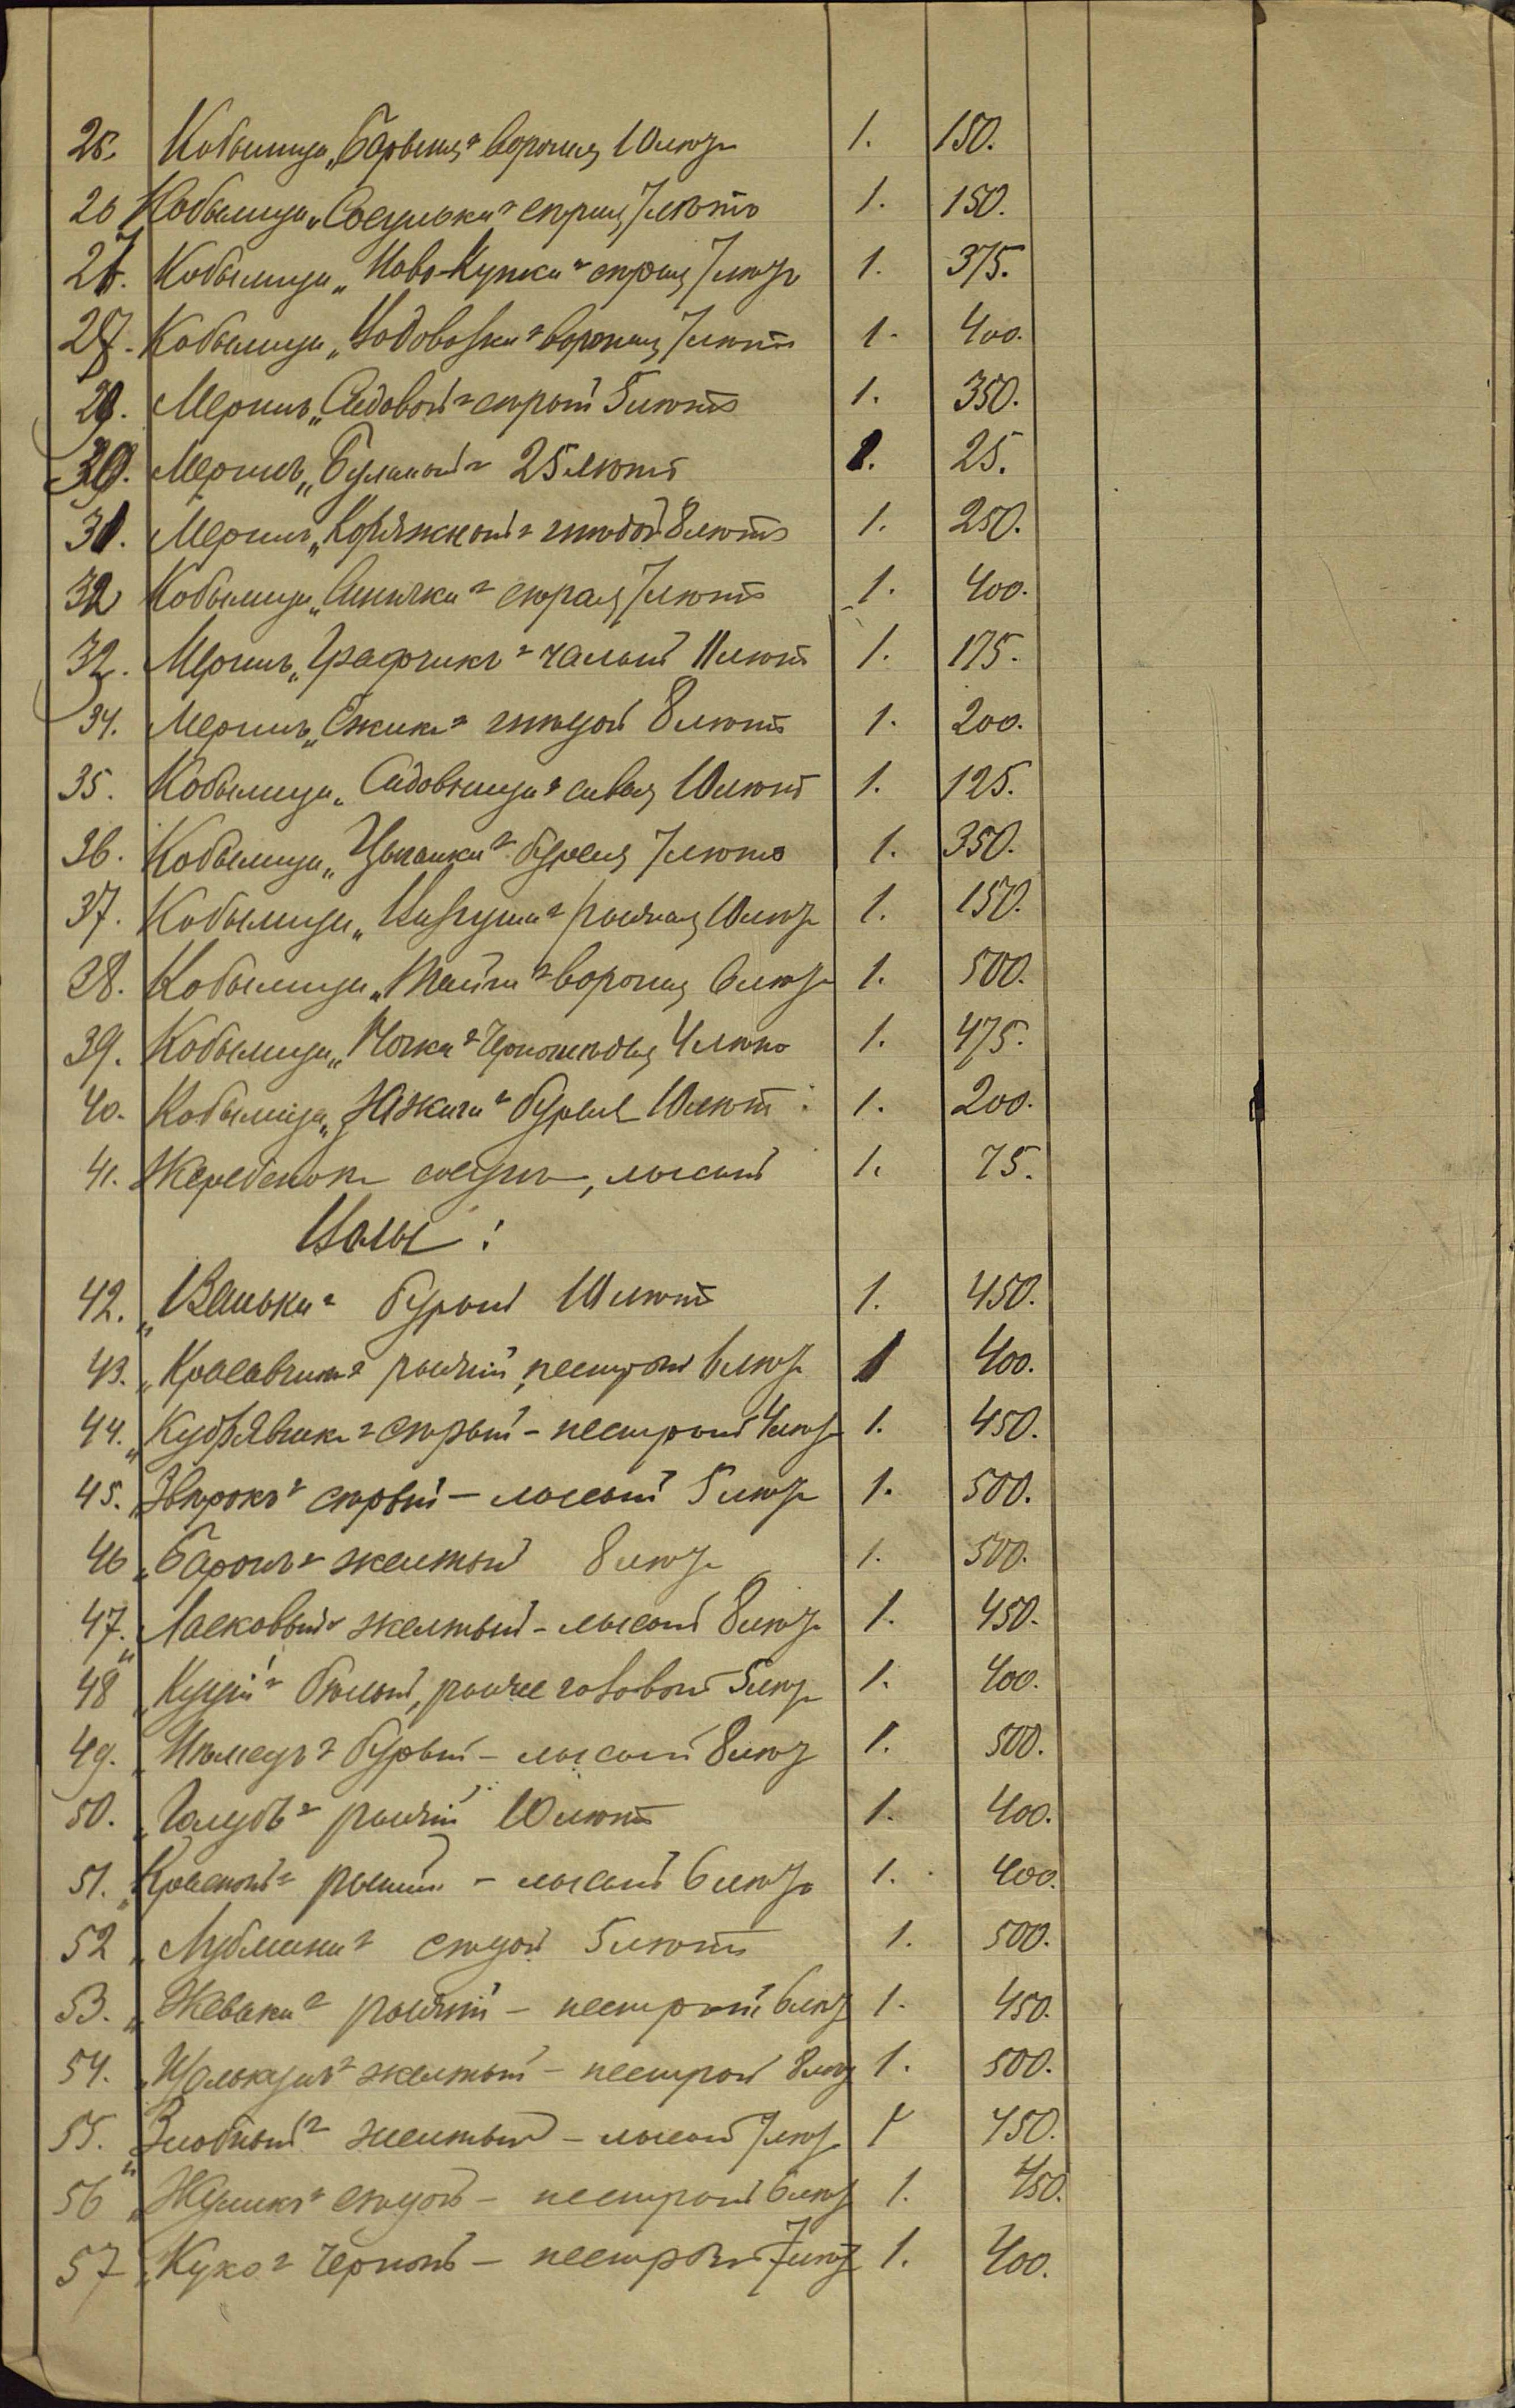 25. Кобылица „Барыня“ вороная 10 лѣтъ 1. 150.
26 Кобылица „Сосулька“ сѣрая 7 лѣтъ 1. 150.
27. Кобылица „Ново-Купка“ сѣрая 7 лѣтъ 1. 375.
28. Кобылица вороная 7 лѣтъ 1. 400.
29. Меринъ „Садовой“ сѣрый 5 лѣтъ 1. 350.
30. Меринъ „Буланый“ 25 лѣтъ 1. 25.
31. Меринъ „Коряжной“ гнѣдой 8 лѣтъ 1. 250.
32 Кобылица „Синичка“ сѣрая 7 лѣтъ 1. 400.
32. Меринъ „Графчикъ“ чалый 11 лѣтъ 1. 175.
34. Меринъ „Ежикъ“ гнѣдой 8 лѣтъ 1. 200.
35. Кобылица „Садовница“ сивая 10 лѣтъ 1. 125.
36. Кобылица „Цыганка“ бурая 7 лѣтъ 1. 350.
37. Кобылица рыжая 10 лѣтъ 1. 150.
38. Кобылица „Тайга“ вороная 6 лѣтъ 1. 500.
39. Кобылица „Ночка“ 4 лѣтъ 1. 475.
40. Кобылица „Зажига“ бурая 10 лѣтъ 1. 200.
41. Жеребенокъ сосунъ, лысый 1. 75.
Волы:
42. „Ванька“ бурый 10 лѣтъ 1. 450.
43. „Красавчикъ“ рыжій, пестрый 6 лѣтъ 1 400.
44. „Кудрявчикъ“ сѣрый - пестрый 4 лѣтъ 1. 450.
45. „Звѣрокъ“ сѣрый - лысый 5 лѣтъ 1. 500.
46 „Баронъ“ желтый 8 лѣтъ 1. 500.
47. „Ласковый“ желтый - лысый 8 лѣтъ 1. 450.
48 „Куцій“ бѣлый, 5 лѣтъ 1. 400.
49. „Нѣмецъ“ бурый - лысый 8 лѣтъ 1. 500.
50. „Голубь“ рыжій 10 лѣтъ 1. 400.
51. „Красный“ рыжій - лысый 6 лѣтъ 1. 400.
52 сѣдой 5 лѣтъ 1. 500.
53. „Жевака“ рыжій - пестрый 6 лѣтъ 1. 450.
54. желтый - пестрый 8 лѣтъ 1. 500.
55. „Злобный“ желтый - лысый 7 лѣтъ 1 450.
56 сѣдой - пестрый 6 лѣтъ 1. 450.
57 „Куко“ черный - пестрый 7 лѣтъ 1. 400.